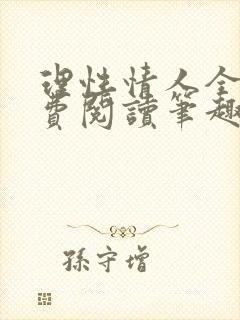 理性情人全
費閱讀筆趣
孫守增